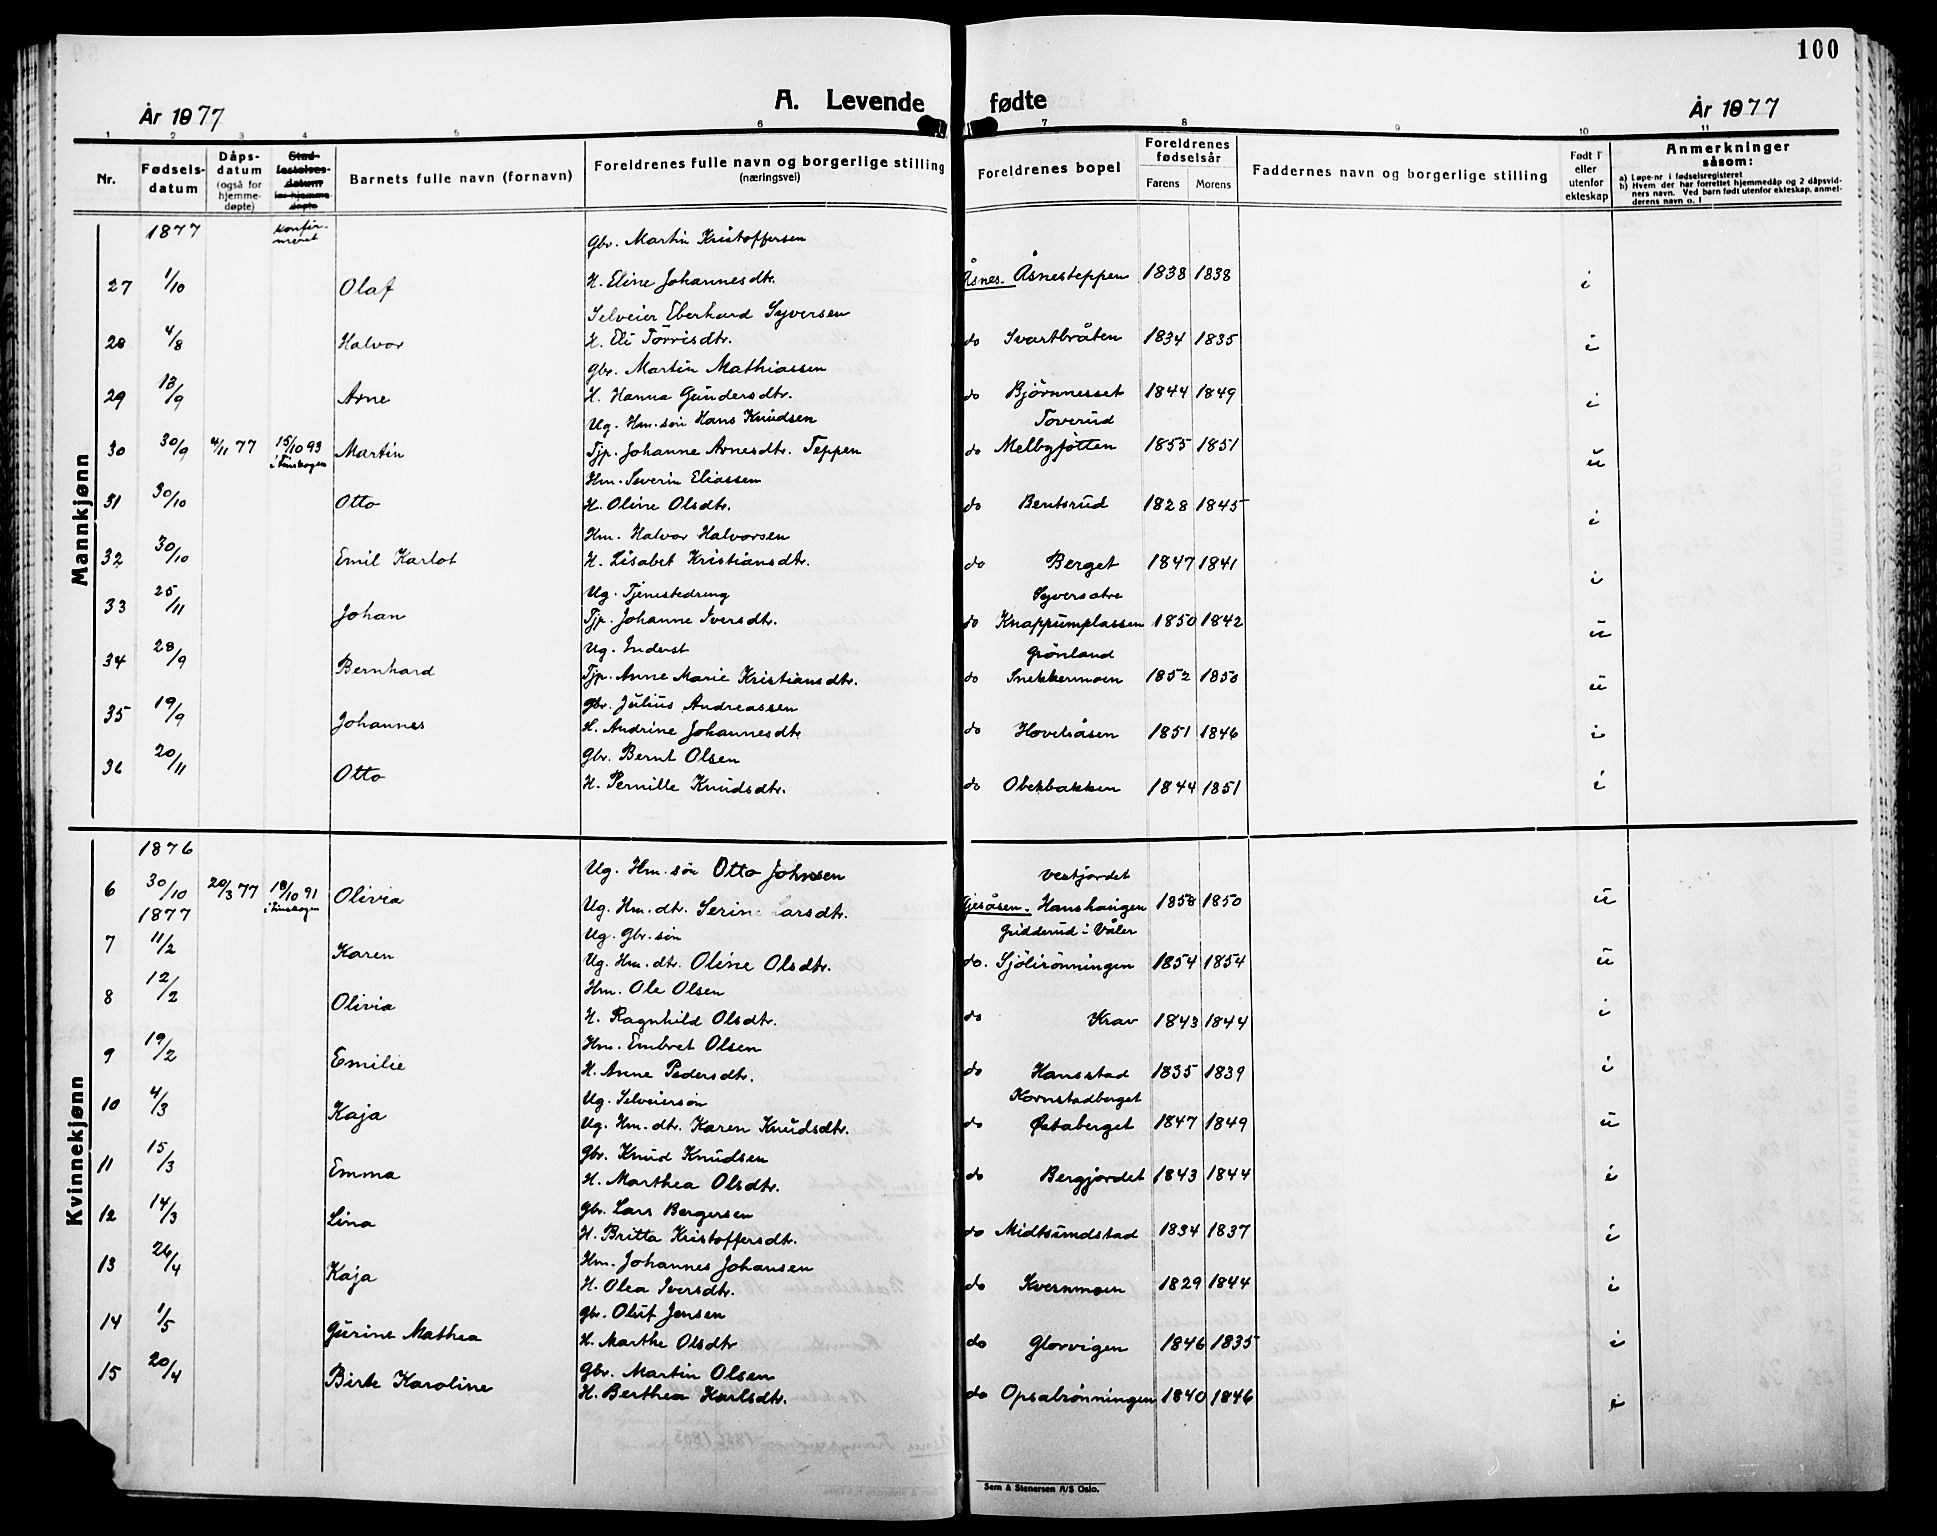 100
A. Levende fødte
År 1877
År 1877
1 2 3 4 5 6 7 8 9 10 11
Nr. Fødselsdatum Dåpsdatum (også for hjemmedøpte) Stadfestelsesdatum for hjemmedøpte Barnets fulle navn (fornavn) Foreldrenes fulle navn og borgerlige stilling (næringsvei) Foreldrenes bopel Foreldrenes fødselsår Farens Morens Faddernes navn og borgerlige stilling Født i eller utenfor ekteskap Anmerkninger såsom:
a) Løpe-nr. i fødselsregisteret
b) Hvem der har forrettet hjemmedåp og 2 dåpsvidners navn. Ved barn født utenfor ekteskap, anmelderens navn o. l
Mannkjønn
1877 konfirmeret
Gbr. Martin Kristoffersen
27 1/10 Olaf H. Eline Johannesdtr. Åsnes. Åsnesteppen 1838 1838 i
Selveier Eberhard Syversen
28 4/8 Halvor H. Eli Torrisdtr. do Svartbråten 1834 1835 i
Gbr. Martin Mathiassen
29 13/9 Arne H. Hanna Gundersdtr. do Bjørnnesset 1844 1849 i
Ug. Hm. søn Hans Knudsen Toverud
30 30/9 4/11 77 15/10 93 i Finskogen Martin Tjp. Johanne Arnesdtr. Teppen do Melbyføtten 1855 1851 u
Hm. Severin Eliassen
31 30/10 Otto H. Oline Olsdtr. do Bentsrud 1828 1845 i
Hm. Halvor Halvorsen
32 30/10 Emil Karlot H. Lisabet Kristiansdtr. do Berget 1847 1841 i
Ug. Tjenestedreng Syversætre
33 25/11 Johan Tjp. Johanne Iversdtr. do Knappumplassen 1850 1842 u
Ug. Inderst Grønland
34 28/9 Bernhard Tjp. Anne Marie Kristiansdtr. do Snekkermoen 1852 1850 u
Gbr. Julius Andreassen
35 19/9 Johannes H. Andrine Johannesdtr do Hovelsåsen 1851 1846 i
Gbr. Bernt Olsen
36 20/11 Otto H. Pernille Knudsdtr. do Obekbakken 1844 1851 i
Kvinnekjønn
1876
Ug. Hm. søn Otto Johnsen Vestjordet
6 30/10 20/3 77 18/10 91 i Finskogen Olivia Ug. Hm. dtr. Serine Larsdtr. Gjesåsen. Hanshaugen 1858 1850 u
1877
Ug. Gbr. søn Gridderud i Våler
7 11/2 Karen Ug. Hm. dtr. Oline Olsdtr. do. Sjølirønningen 1854 1854 u
Hm. Ole Olsen
8 12/2 Olivia H. Ragnhild Olsdtr. do Krav 1843 1844 i
Hm. Embret Olsen
9 19/2 Emilie H. Anne Pedersdtr. do Hansstad 1835 1839 i
Ug. Selveiersøn Kornstadberget
10 4/3 Kaja Ug. Hm. dtr. Karen Knudsdtr. do Østaberget 1847 1849 u
Gbr. Knud Knudsen
11 15/3 Emma H. Marthea Olsdtr. do Bergjordet 1843 1844 i
Gbr. Lars Bergersen
12 14/3 Lina H. Britta Kristoffersdtr. do Midtsundstad 1834 1837 i
Hm. Johannes Johansen
13 26/4 Kaja H. Olea Iversdtr. do Kvernmoen 1829 1844 i
Gbr. Oluf Jensen
14 1/5 Gurine Mathea H. Marthe Olsdtr do Glorvigen 1846 1835 i
Gbr. Martin Olsen
15 20/4 Birte Karoline H. Berthea Karlsdtr. do Opsalrønningen 1840 1846 i
Sem & Stenersen A/S Oslo.